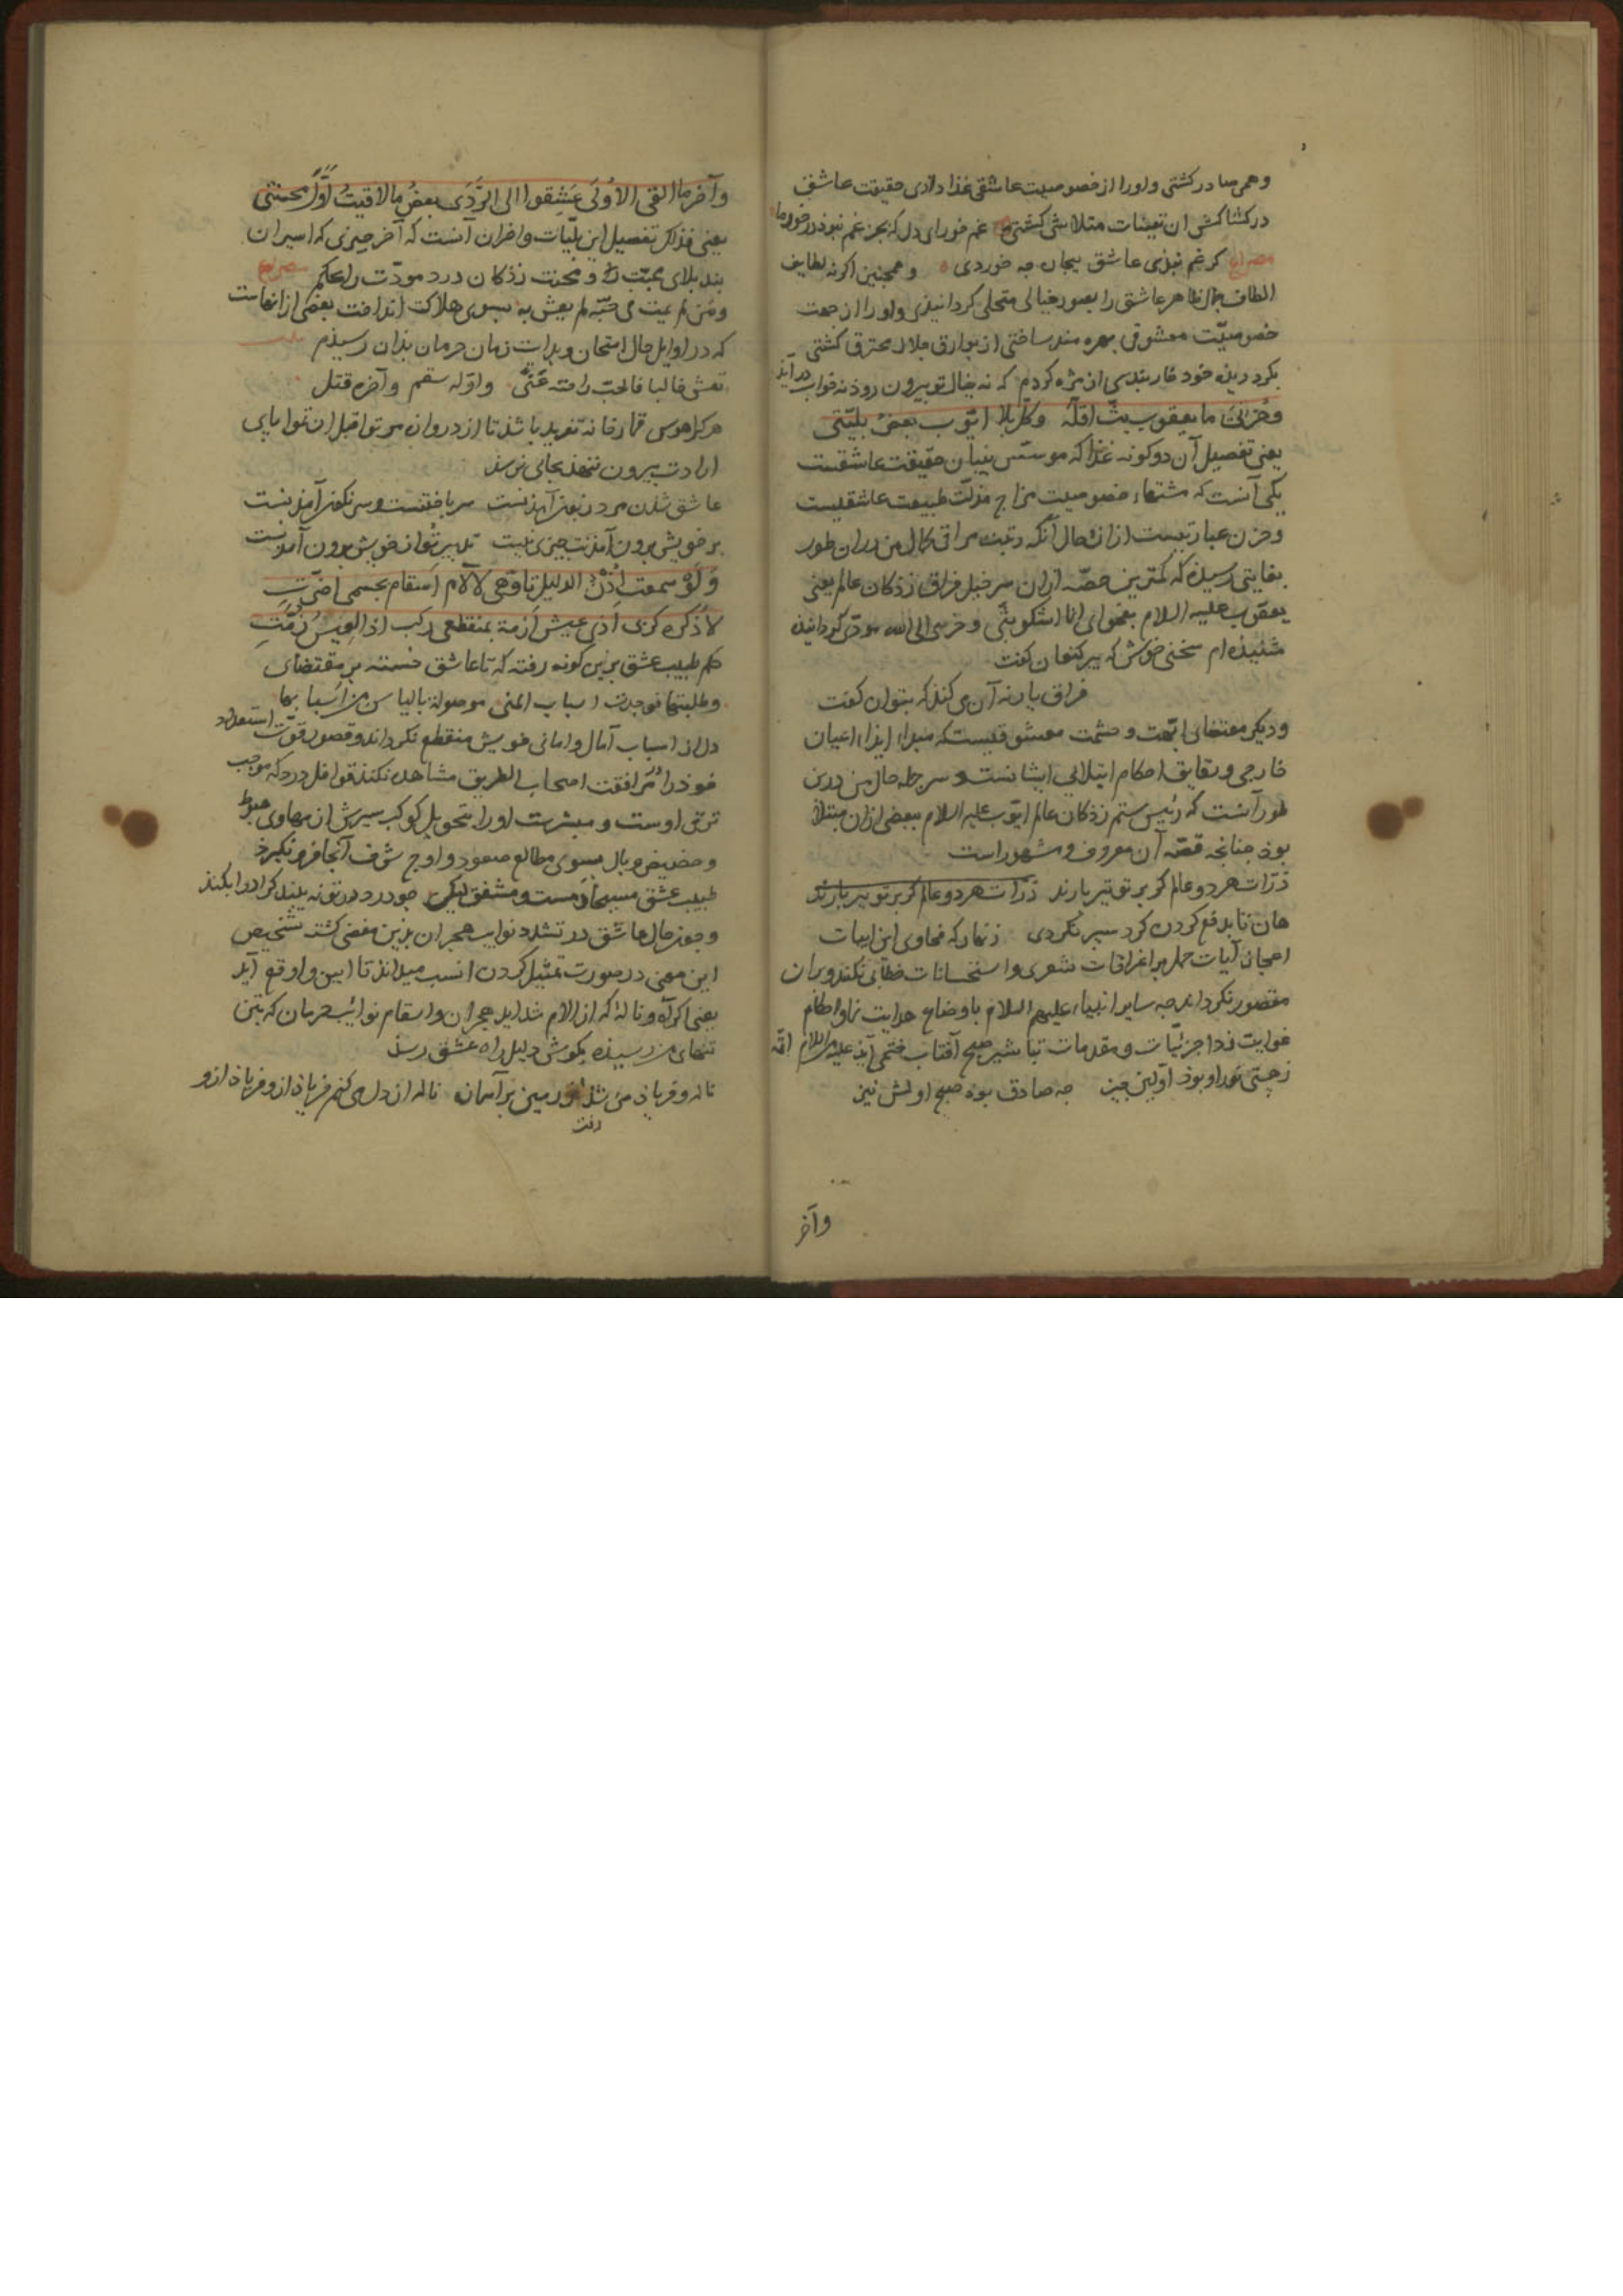 وهمی صادر کشتی واورا از خصوصیت عاشقی غذا دادی حقیقت عاشق
در کشاکش ان تعینات متلاشی کشتی غم خور ای دل که بجز غم نبوذ در خور ما
مصراع کر غم نبذی عاشق بیجان جه خوردی وهمجنین اکرنه لطایف
الطاف جمال ظاهر عاشق را بصور خیالی متحلی کردانیذی واورا از جهت
خصوصیّت معشوقی بهره مند ساختی از بوارق جلال محترق کشتی
بکرد دیذه خود خار بندی از مژه کردم که نه خیال تو بیرون روذ نه خواب درآید
وحُزنیَ ما یعقوب بثّ اقلّهُ وکلّ بلا ایّوب بعضُ بلیّتی
یعنی تفصیل آن دو کونه غذا که موسّس بنیان حقیقت عاشقیست
یکی آنست که مشتهاء خصوصیت مزاج مذلّت طبیعت عاشقلیست
وحزن عبارتیست ازان وحال آنکه رتبت مراقی کمال من دران طور
بغایتی رسیذه که کمترین حصّه ازان سر خیل فراق زذکان عالم یعنی
یعقوب علیه السلام بفحوای انّا اشکو بثّی وحزنی الی الله مودّی کردانیذه
شنیذه ام سخنی خوش که پیر کنعان کفت
فراق یار نه آن می کنذ که بتوان کفت
ودیکر مقتضای ابّهت وحشمت معشوقیست که مبداء ایذاء اعیان
خارجی وبقایق احکام ابتلایی ایشانست وسر جمله حال من درین
طور آنست که رئیس ستم زذکان عالم ایّوب علیه السلام ببعضی ازان مبتلا
بوذ جنانجه قصّه آن معروف ومشهور است
ذرّات هر دو عالم کر بر تو تیر بارند ذرّات هر دو عالم کر بر تو تیر بارند
هان تا بدفع کردن کرد سپر نکردی زنهار که فحاوی این ابیات
اعجاز آیات حمل بر اغراقات شعری واستحسانات خطابی نکند وبران
مقصور نکرداند جه سایر انبیاء علیهم السلام باوضاع هدایت نما واحکام
غوایت زدا جزئیّات ومقدمات تباشیر صبح آفتاب ختمی آیذ علیه السلام
زجستی نور او بوذ اوّلین جیز جه صادق بوذ صبح اولش نیز
وآخر
وآخر ما القی الاُولَی عَشِقوا الی الرَّدَی بعضُ ما لاقیتُ اوّلَ محنتی
یعنی فذلک تفصیل این بلیّات واحزان آنست که آخر جیزی که اسیران
بند بلای محبّت را ومحنت زذکان درد مودّت را بحکم مصراع
ومَن لم یمت فی حبّه لم یعش به بسوی هلاکت انداخت بعضی از انهاست
که در اوایل حال امتحان وبدایت زمان حرمان بذان رسیذم
تعش خالیا فالحب راحته عَنًی واوّله سقم وآخره قتل
هر کرا هوس قمارخانه تفرید باشذ تا از دروازه موتوا قبل ان تموتوا پای
ارادت بیرون ننهذ بجایی نرسذ
عاشق شدن مرد ز بن آمذنست سر باختنست وسرنکون آمذنست
بر خویش برون آمذنت جیزی نیست تدبیر تو از خویش برون آمذنست
وَلَو سمعت اُذُن الدلیل تاوّهی لآلام اَسقام بجسمی اضَرّتِ
لاَذکَره کربی اَذی عیش اَزمة بمنقطعی رکب اذا العیسُ زُمّتِ
حکم طبیب عشق برین کونه رفته که تا عاشق خسته بر مقتضای
وطلبتها فوجدت اسباب المنی موصولة بالیاس من اسبابها
دل از اسباب آمال وامانی خویش منقطع نکرداند وقصور قوّت استعداد
خوذ را از مرافقت اصحاب الطریق مشاهده نکند قوافل درد که موجب
ترقی اوست ومبشرت اورا بتحویل کوکب سیرش از مهاوی هبوط
وحضیض وبال بسوی مطالع صعود واوج شرف آنجا فرو نکیرذ
طبیب عشق مسیحا دمست ومشفق لیک جو درد در تو نه بیند کرا دوا بکند
وجون حال عاشق در تشدد نوایب هجران بذین مفضی کشته تشخیص
این معنی در صورت تمثیل کردن انسب میداند تا ابین واوقع آید
یعنی اکر آه وناله که از آلام شداید هجران واسقام نوائب حرمان که بتن
تنهای من رسیذه بکوش دلیل راه عشق رسذ
ناله وفریاذ من شد از زمین بر آسمان ناله از دل می کنم فریاذ ازو فریاذ ازو
رفت